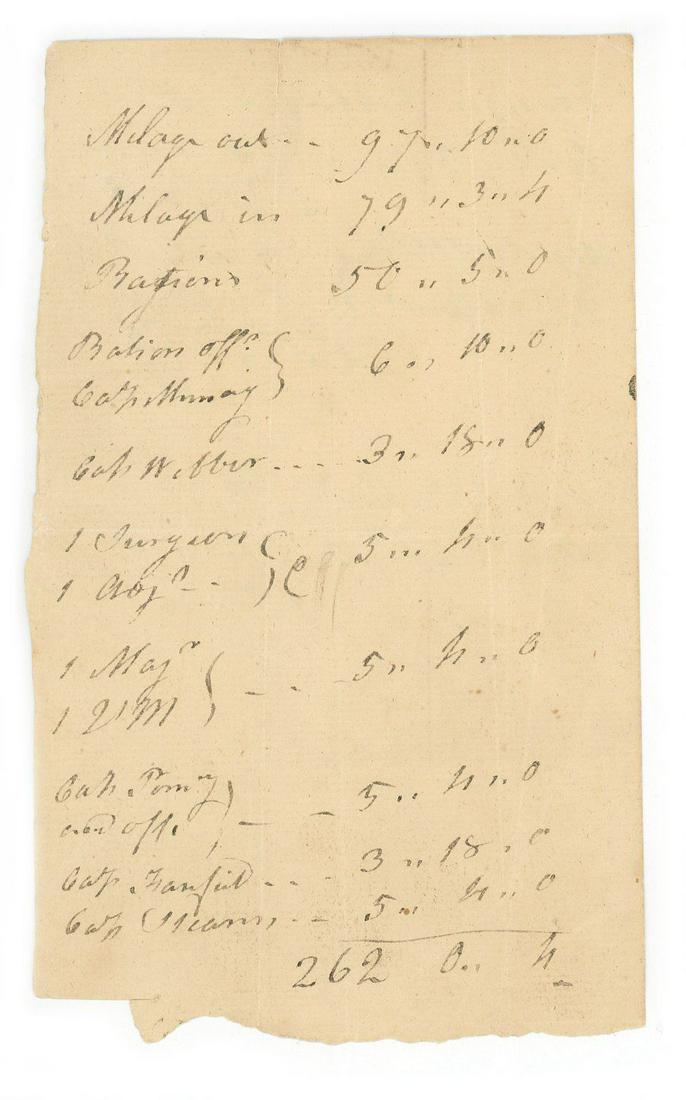 Milage out - - 97 ,, 10 ,, 0
Milage in 79 ,, 3 ,, 4
Rations 50 ,, 5 ,, 0
Ration offrs
Capt Murray } 6 ,, 10 ,, 0
Capt Webber - - - 3 ,, 18 ,, 0
1 Surgeon
1 Adjt - - } 5 ,, 4 ,, 0
1 Majr
1 Q M } - - 5 ,, 4 ,, 0
Capt
and off. } - - 5 ,, 4 ,, 0
Capt - - - 3 ,, 18 ,, 0
Capt Stearns - - 5 ,, 4 ,, 0
262 0 ,, 4